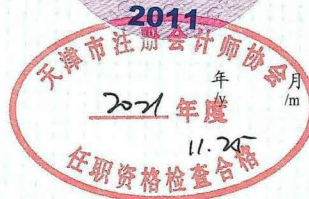 2011
天津市注册会计师协会
年 月
/y /m
2021 年度
11.25
任职资格检查合格